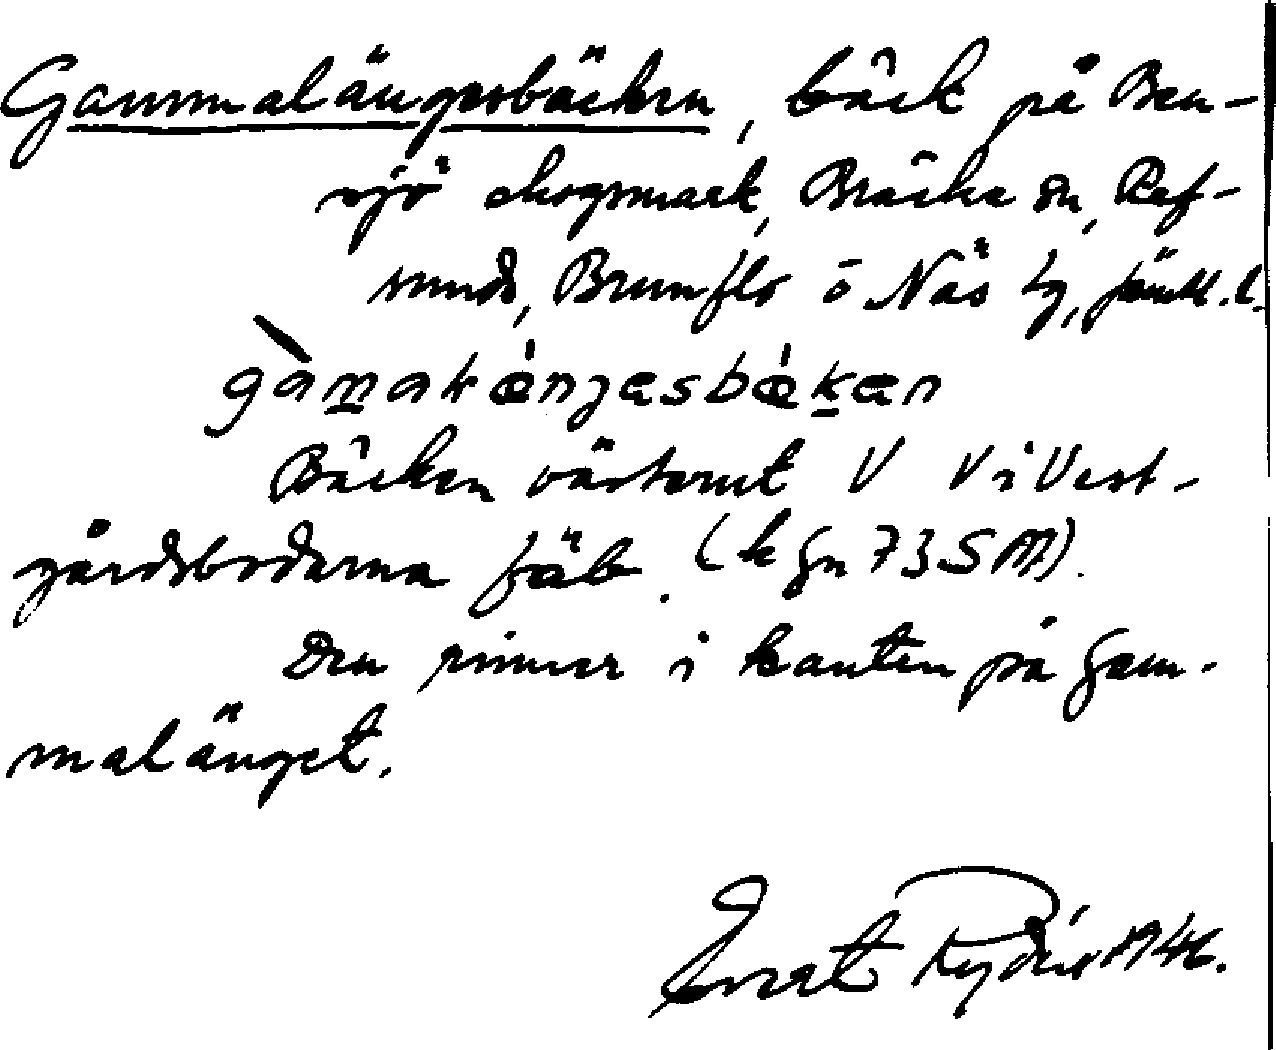 Gammalängesbäcken, bäck på Ben-
sjö skogsmark, Bräcke sn, Ref-
sunds, Brunflo o Näs tg, Jämtl. l.
gàmakǽnjesbǽken
Bäcken västerut V V i Vest-
gårdsbodarna fäb. (k Gn 73 SM).
Den rinner i kanten på Gam-
malänget.
Evert Rydén 1946.